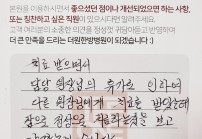 본원을 이용하시면서 좋으셨던 점이나 개선되었으면 하는 사항,
또는 칭찬하고 싶은 직원이 있으시다면 알려주세요.
고객 여러분의 소중한 의견을 정성껏 귀담아듣고 반영하여
더 큰 만족을 드리는 더원한방병원이 되겠습니다 :)
치료 받으면서
담당 원장님의 휴가로 인하여
다른 원장님에게 치료를 받았는데
참으로 정성으로